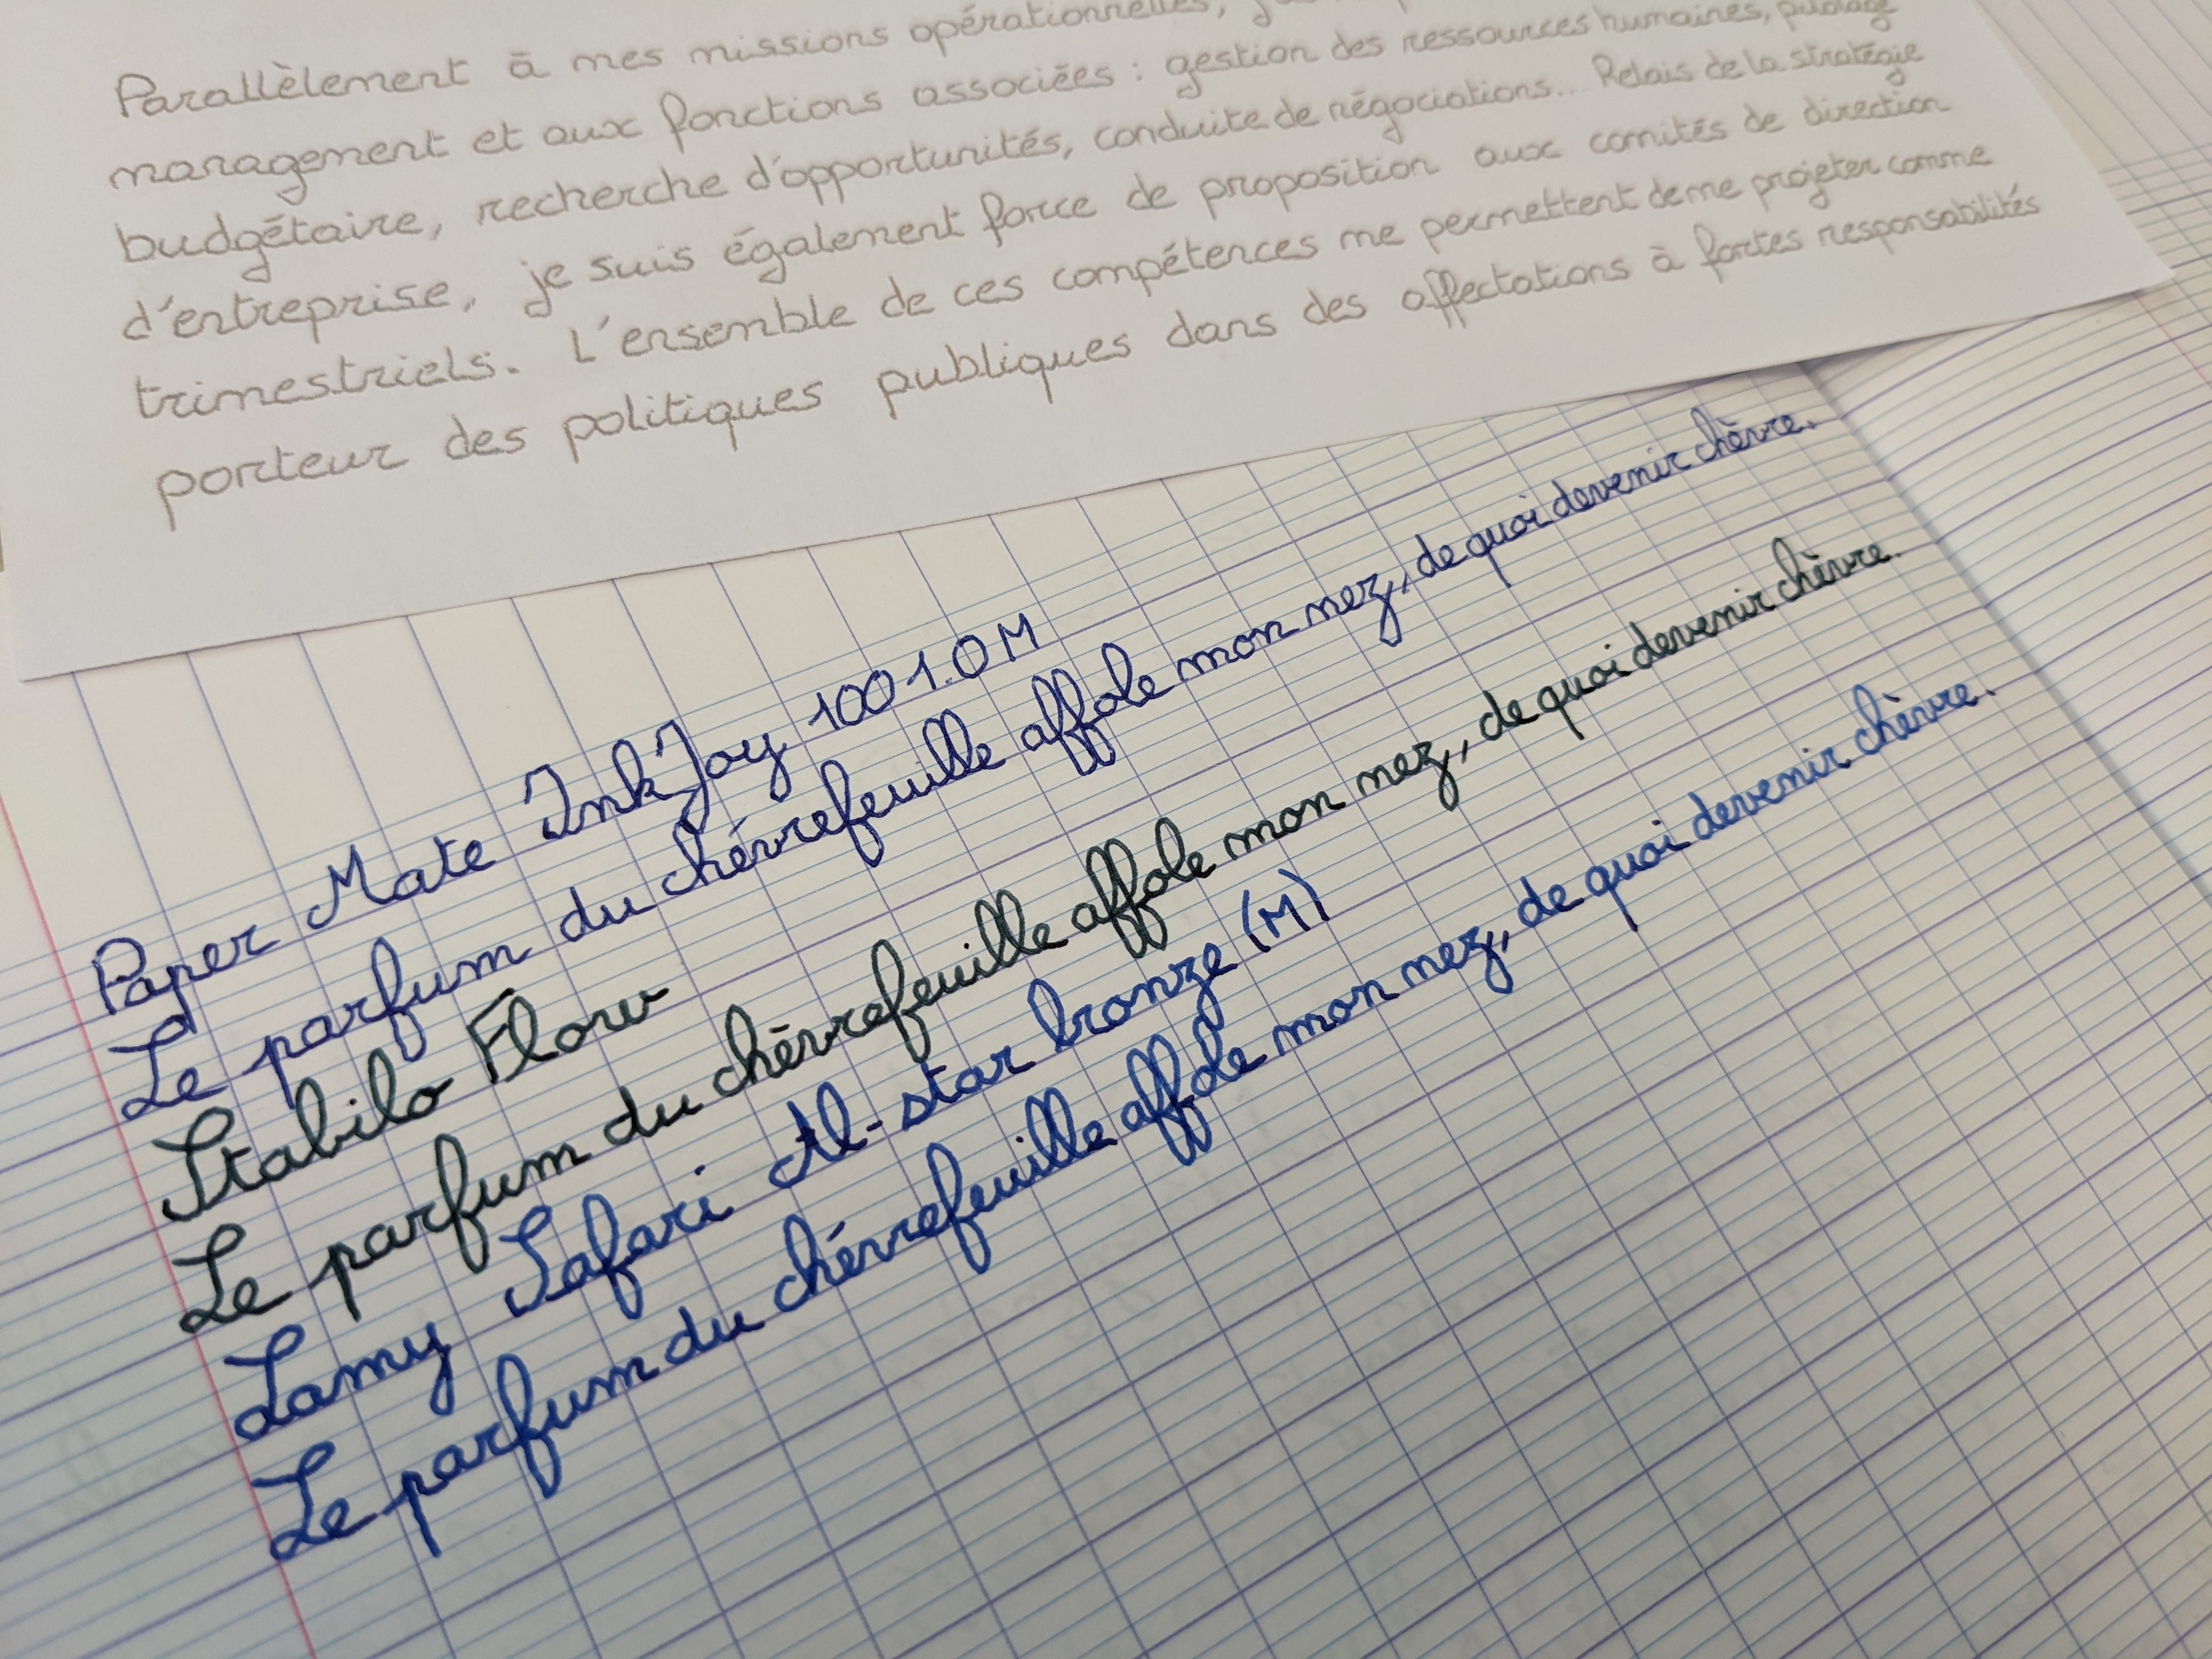 Parallèlement à mes missions opérationnelles,
management et aux fonctions associées : gestion des ressources humaines, pilotage
budgétaire, recherche d'opportunités, conduite de négociations... Relais de la stratégie
d'entreprise, je suis également force de proposition aux comités de direction
trimestriels. L'ensemble de ces compétences me permettent de me projeter comme
porteur des politiques publiques dans des affectations à fortes responsabilités
Paper Mate InkJoy 100 1.0 M
Le parfum du chévrefeuille affole mon nez, de quoi devenir chèvre.
Stabilo Flow
Le parfum du chévrefeuille affole mon nez, de quoi devenir chèvre.
Lamy Safari Al-star bronze (M)
Le parfum du chévrefeuille affole mon nez, de quoi devenir chèvre.